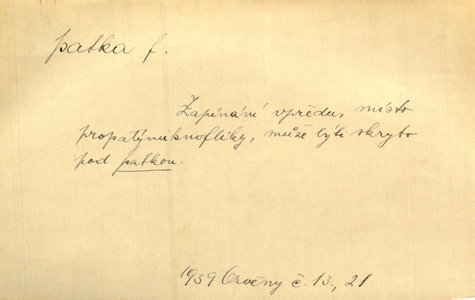 patka f.
Zapínání vpředu, místo
propatýmiknoflíky, může býti skryto
pod patkou.
1939 č. 13., 21